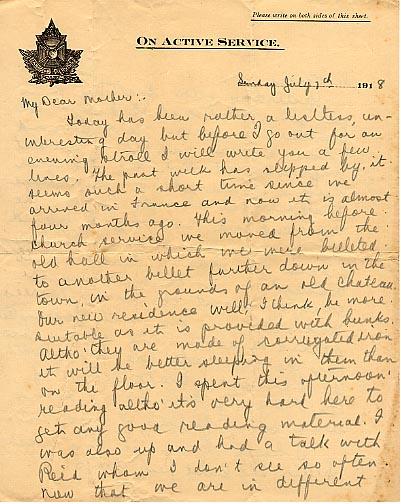 Please write on both sides of this sheet.
ON ACTIVE SERVICE.
Sunday July 7th 1918
My Dear Mother:-
Today has been rather a listless, un-
interesting day but before I go out for an
evening stroll I will write you a few
lines. The past week has slipped by, it
seems such a short time since we
arrived in France and now it is almost
four months ago. This morning before
church service we moved from the
old hall in which we were billeted
to another billet further down in the
town, in the grounds of an old chateau.
Our new residence will, I think, be more
suitable as it is provided with bunks.
Altho' they are made of corrugated iron
it will be better sleeping in them than
on the floor. I spent this afternoon
reading altho' it's very hard here to
get any good reading material. I
was also up and had a talk with
Reid whom I don't see so often
now that we are in different